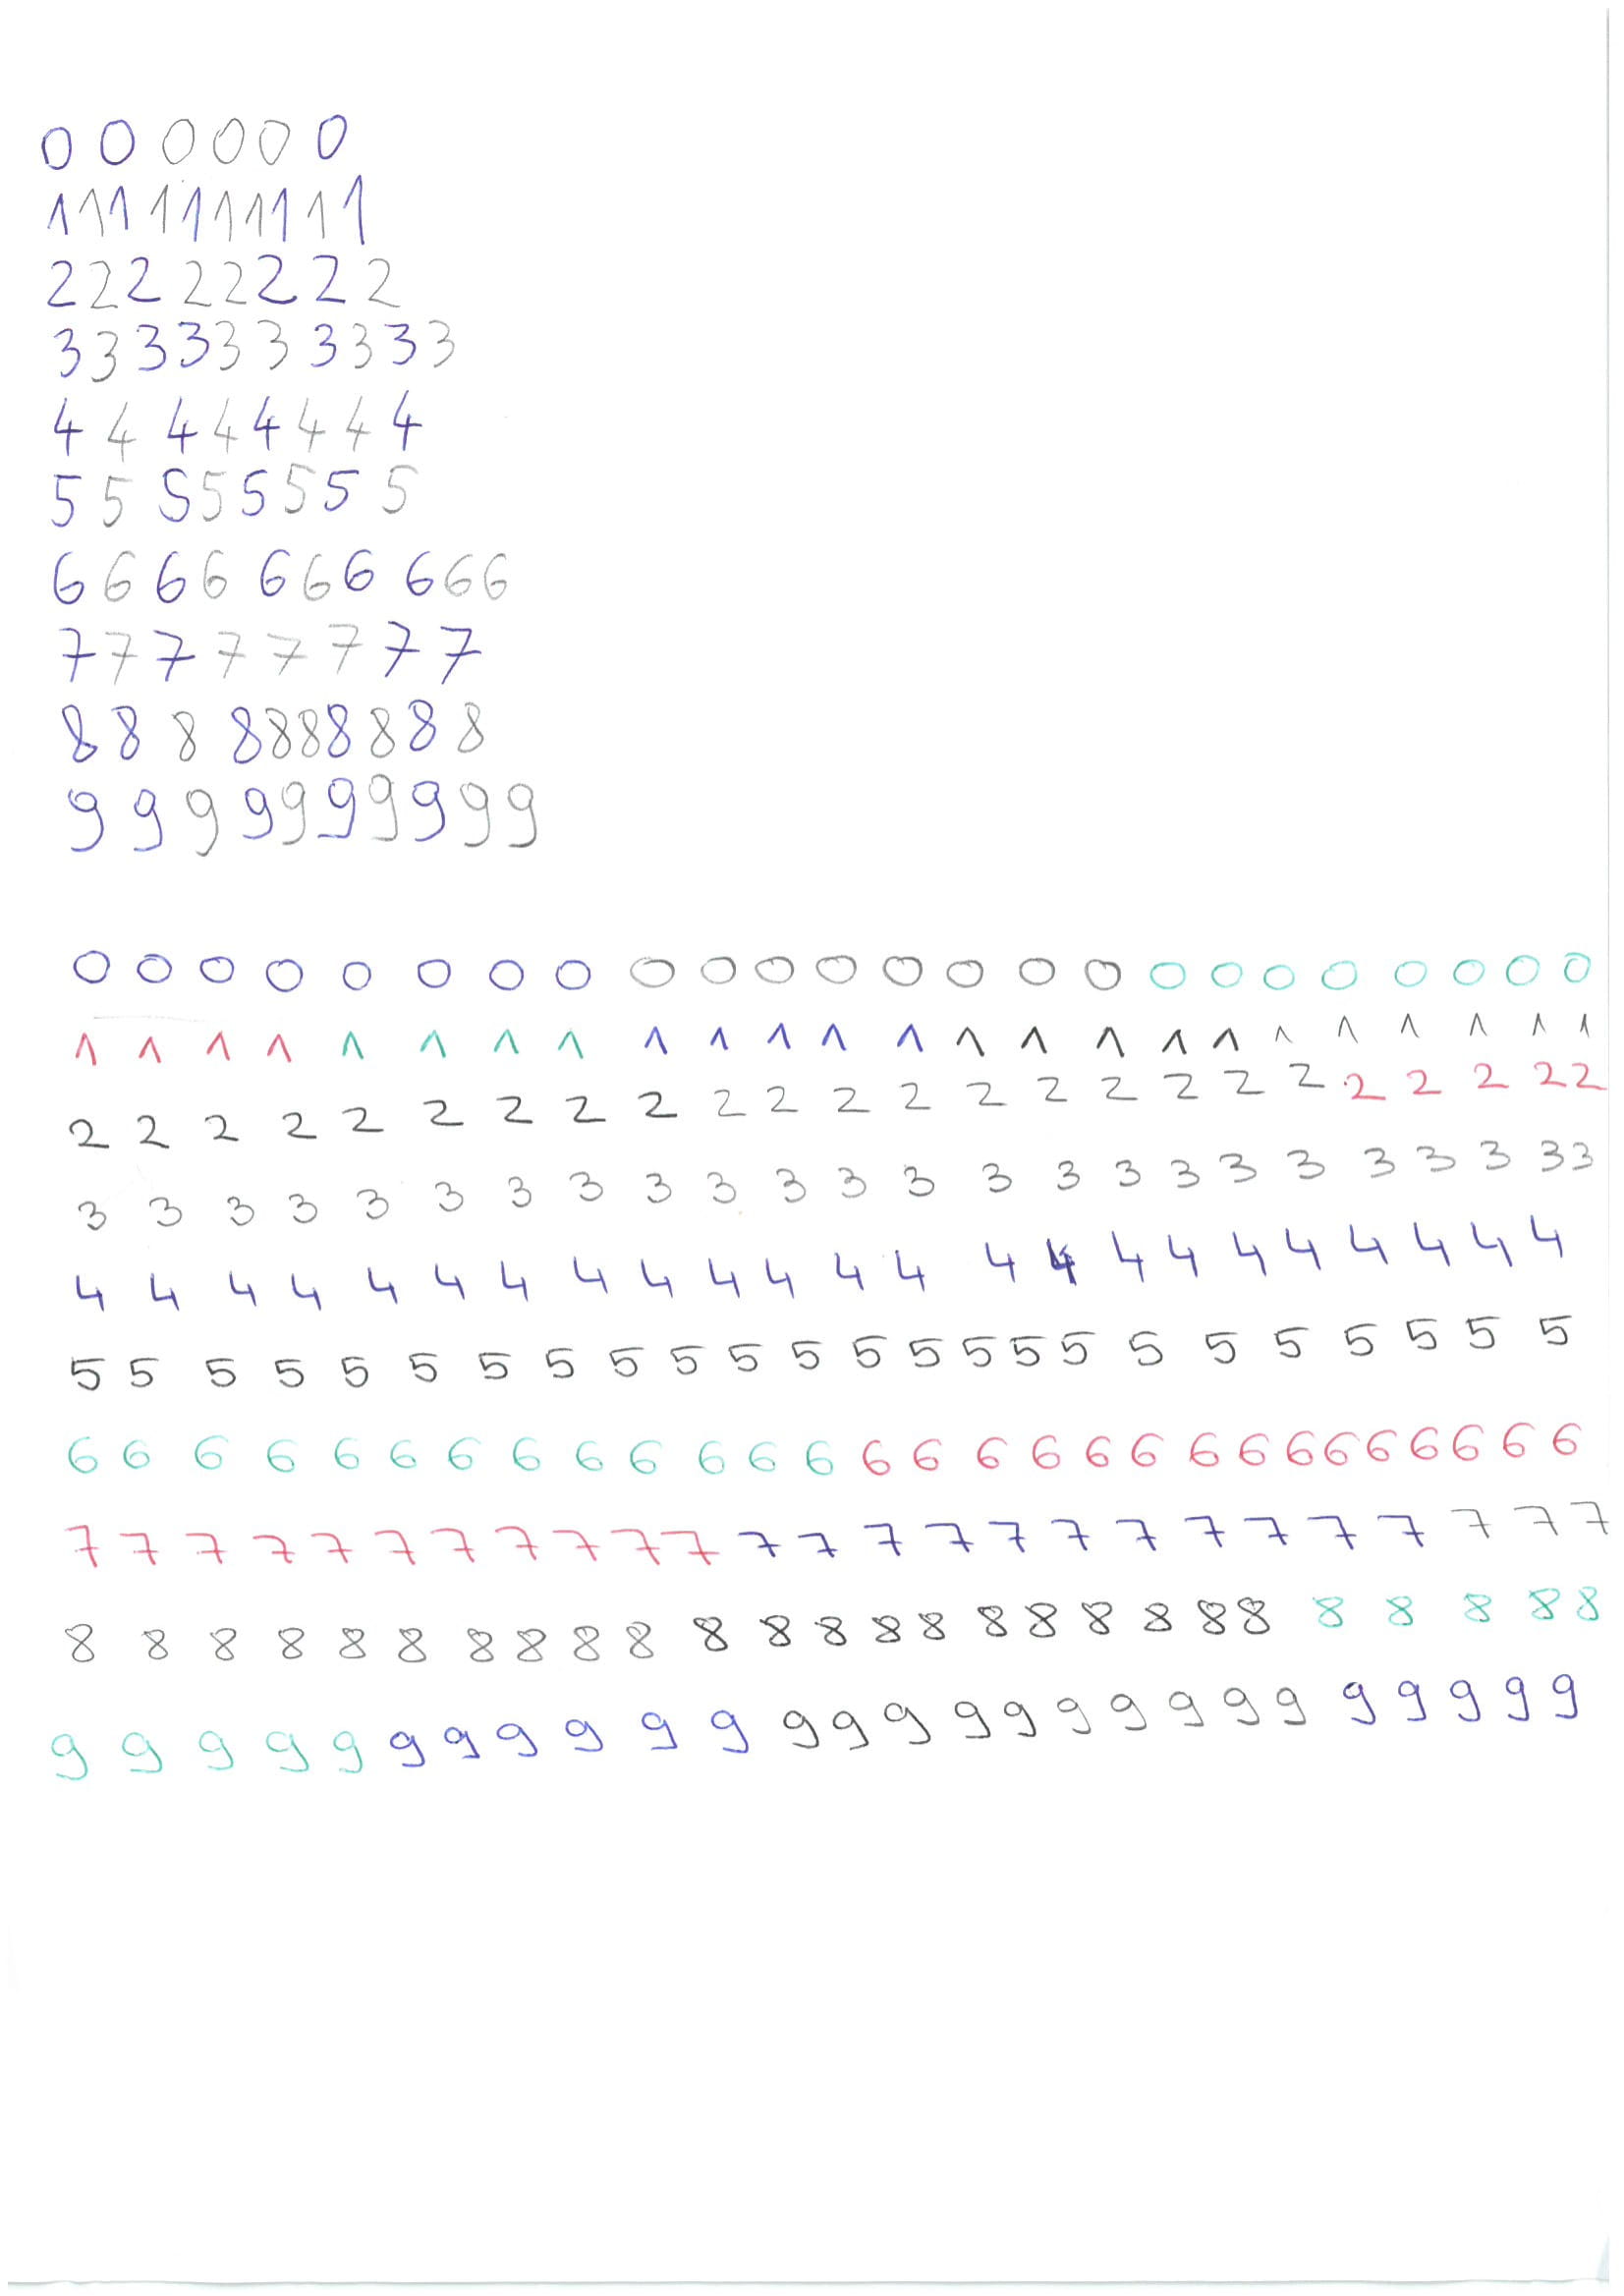 0 0 0 0 0 0
1 1 1 1 1 1 1 1 1 1
2 2 2 2 2 2 2 2
3 3 3 3 3 3 3 3 3 3
4 4 4 4 4 4 4 4
5 5 5 5 5 5 5 5
6 6 6 6 6 6 6 6 6 6
7 7 7 7 7 7 7 7
8 8 8 8 8 8 8 8 8 8
9 9 9 9 9 9 9 9 9 9
0 0 0 0 0 0 0 0 0 0 0 0 0 0 0 0 0 0 0 0 0 0 0 0
1 1 1 1 1 1 1 1 1 1 1 1 1 1 1 1 1 1 1 1 1 1 1 1
2 2 2 2 2 2 2 2 2 2 2 2 2 2 2 2 2 2 2 2 2 2 2 2
3 3 3 3 3 3 3 3 3 3 3 3 3 3 3 3 3 3 3 3 3 3 3
4 4 4 4 4 4 4 4 4 4 4 4 4 4 4 4 4 4 4 4 4 4 4
5 5 5 5 5 5 5 5 5 5 5 5 5 5 5 5 5 5 5 5 5 5 5 5
6 6 6 6 6 6 6 6 6 6 6 6 6 6 6 6 6 6 6 6 6 6 6 6 6 6 6
7 7 7 7 7 7 7 7 7 7 7 7 7 7 7 7 7 7 7 7 7 7 7 7 7
8 8 8 8 8 8 8 8 8 8 8 8 8 8 8 8 8 8 8 8 8 8 8 8 8 8
9 9 9 9 9 9 9 9 9 9 9 9 9 9 9 9 9 9 9 9 9 9 9 9 9 9